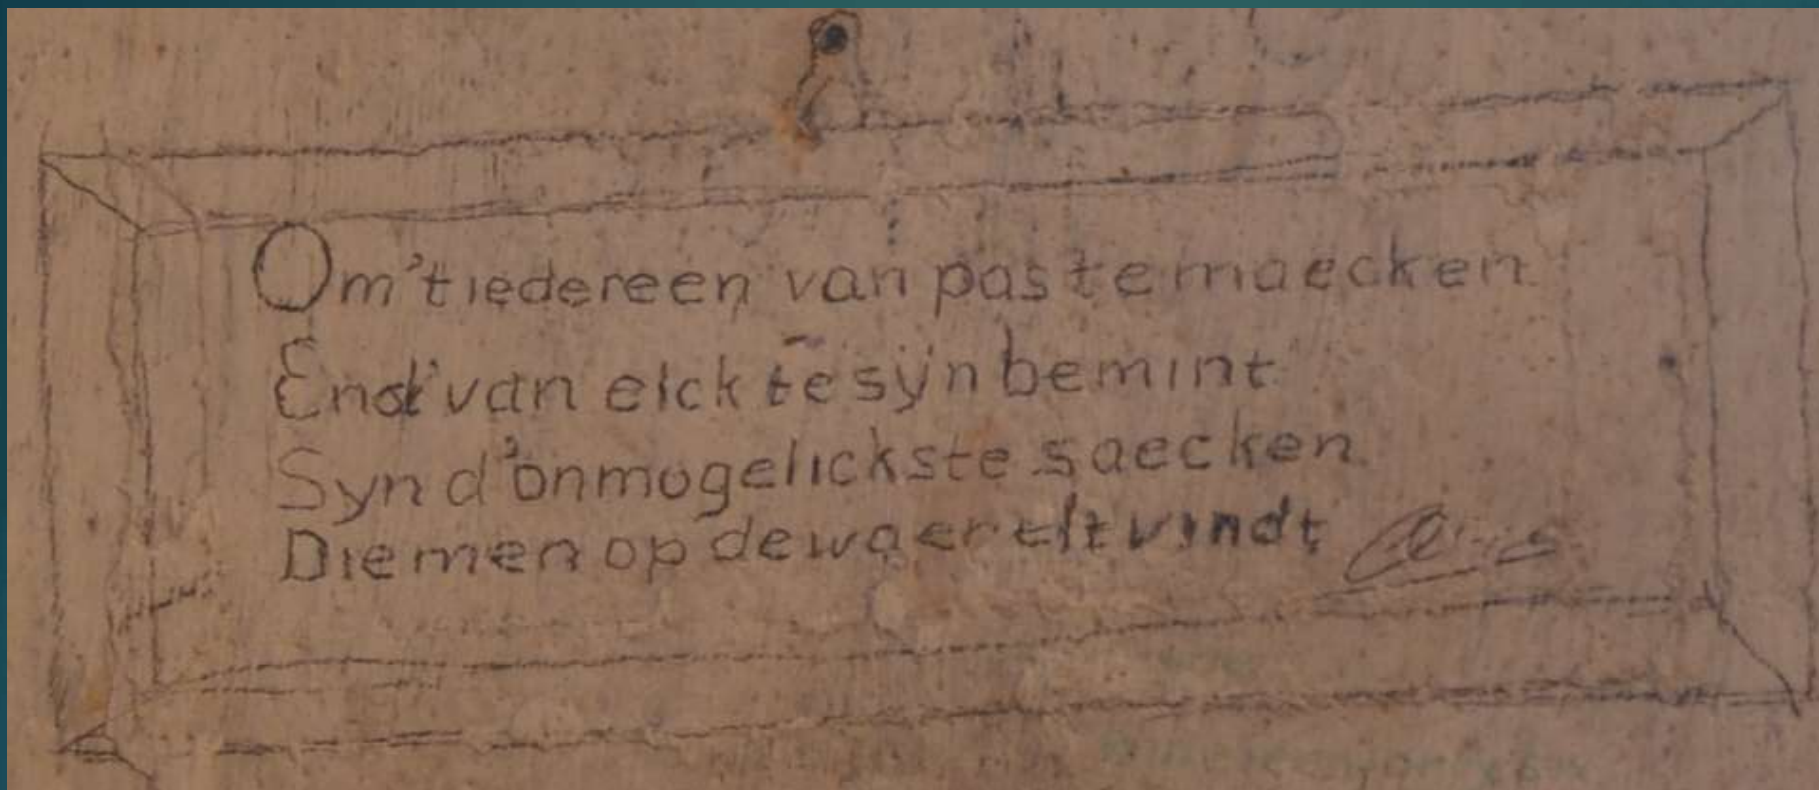 Om 't iedereen van pas te maecken
End' van elck te sÿn bemint
Syn d'onmogelickste saecken
Die men op de waereltt vindt